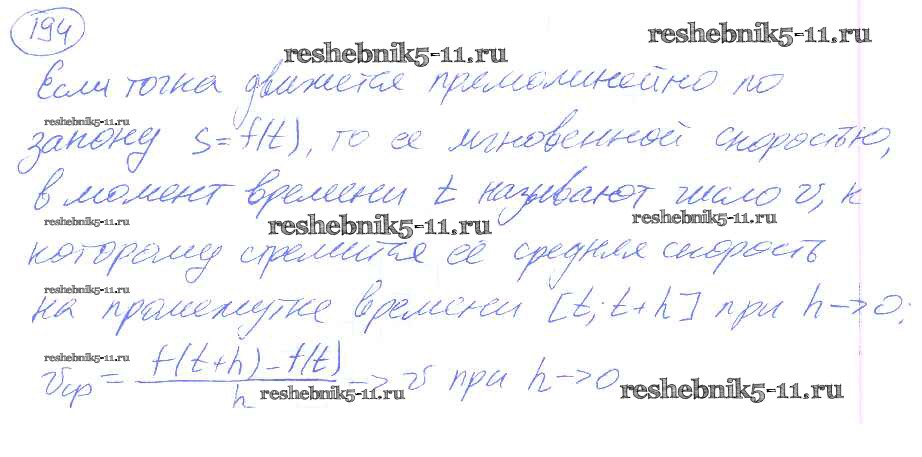 194
reshebnik5-11.ru
reshebnik5-11.ru
Если точка движется прямолинейно по
reshebnik5-11.ru
закону s=f(t), то ее мгновенной скоростью,
в момент времени t называют число v, к
reshebnik5-11.ru
reshebnik5-11.ru
reshebnik5-11.ru
которому стремится её средняя скорость
reshebnik5-11.ru
на промежутке времени [t; t+h] при h→0;
reshebnik5-11.ru
vср = f(t+h)-f(t) / h → v при h→0
reshebnik5-11.ru
reshebnik5-11.ru